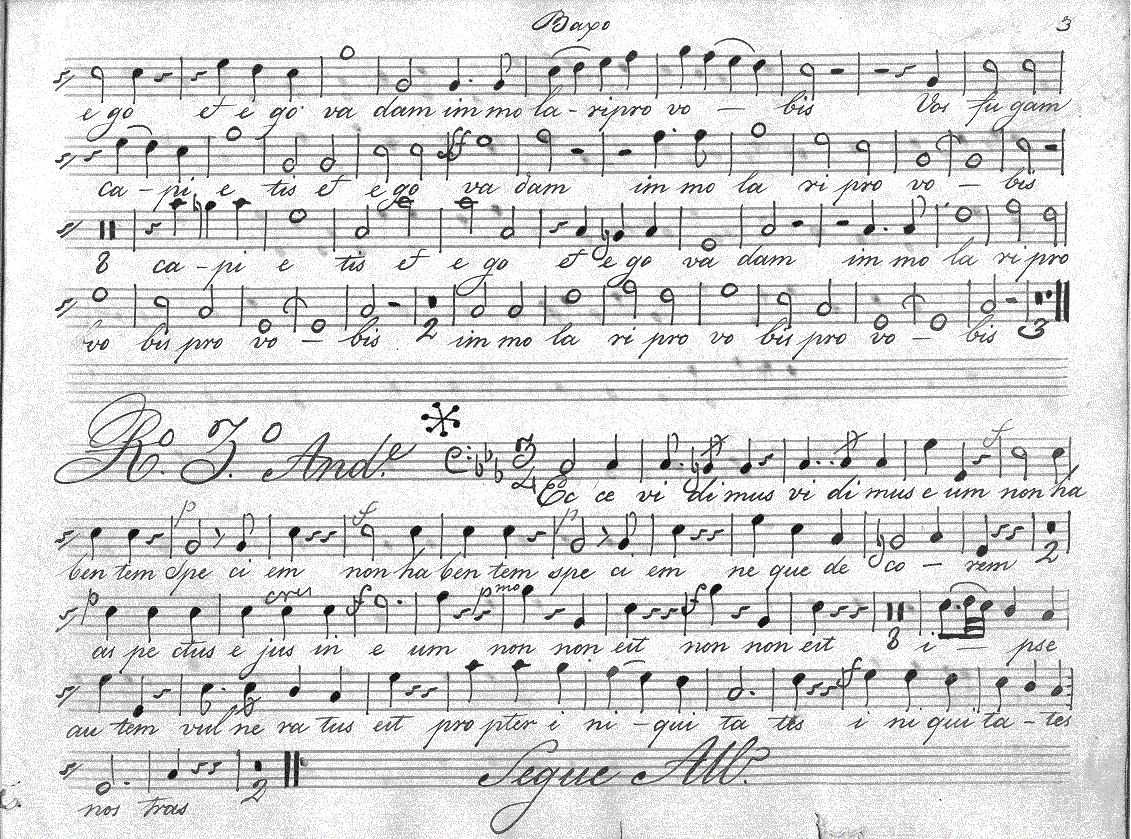 Baxo 3
e go et e go va dam im mo la - ri pro vo — bis Vos fu gam
ca - pi e tis et e go va dam im mo la ri pro vo — bis
8 ca - pi e tis et e go et e go va dam im mo la ri pro
vo bis pro vo — bis 2 im mo la ri pro vo bis pro vo — bis 3
R.º 3.º And.e 3 4
Ec ce vi di mus vi di mus e um non ha
p f p
ben tem Spe ci em non ha ben tem spe ci em ne que de co — rem 2
p cres f pmo f
as pe ctus e jus in e um non non est non non est 8 i — pse
f
au tem vul ne ra tus est pro pter i ni - qui ta tes i ni qui ta - tes
nos tras 2 Segue All.º